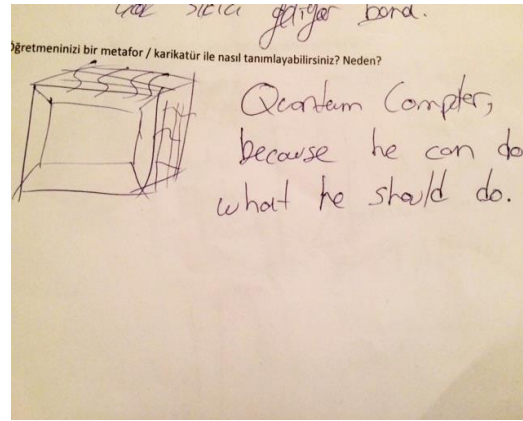 çok sıkıcı geliyor bana.
Öğretmeninizi bir metafor / karikatür ile nasıl tanımlayabilirsiniz? Neden?
Quantum Compter,
because he can do
what he should do.